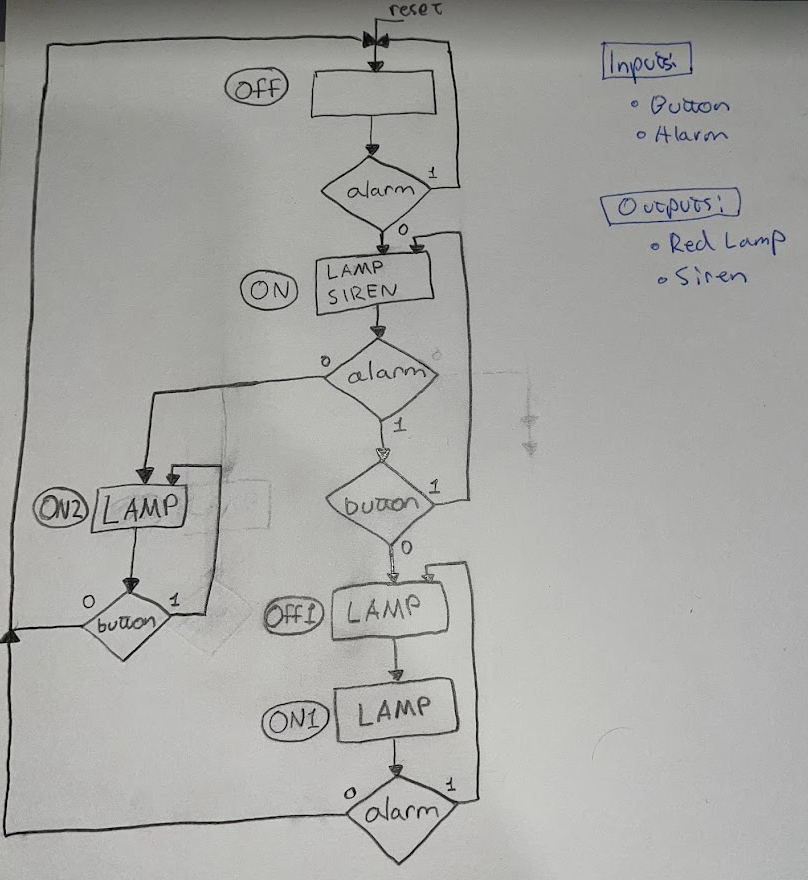 reset
OFF
alarm
1
0
ON
LAMP
SIREN
0
alarm
1
ON2
LAMP
button
1
0
0
1
button
OFF1
LAMP
ON1
LAMP
0
1
alarm
Inputs:
• Button
• Alarm
Outputs:
• Red Lamp
• Siren